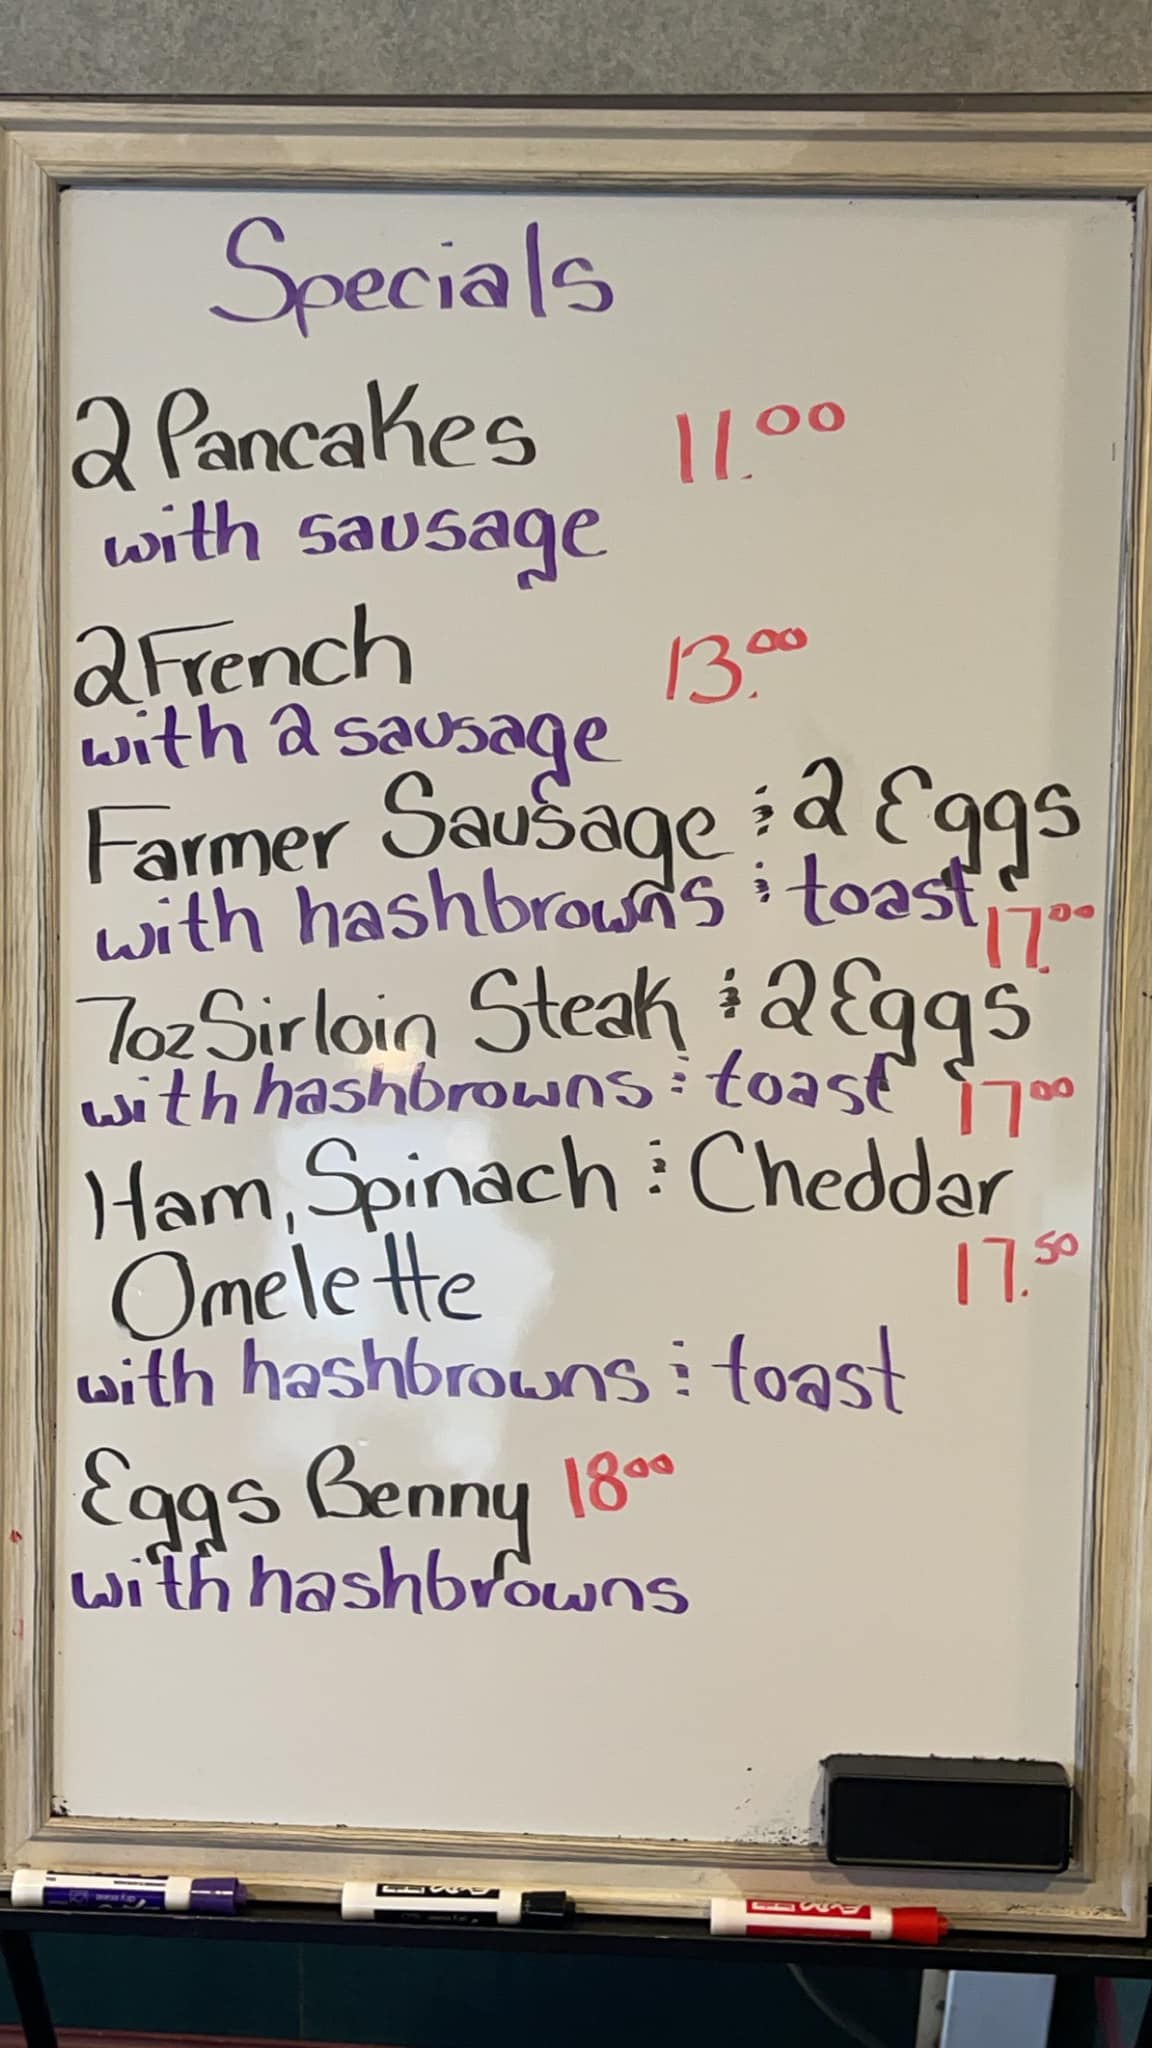 Specials
2 Pancakes 11.00
with sausage
2 French 13.00
with 2 sausage
Farmer Sausage & 2 Eggs
with hashbrowns & toast 17.00
7oz Sirloin Steak & 2 Eggs
with hashbrowns & toast 17 00
Ham, Spinach & Cheddar
Omelette 17.50
with hashbrowns & toast
Eggs Benny 18 00
with hashbrowns